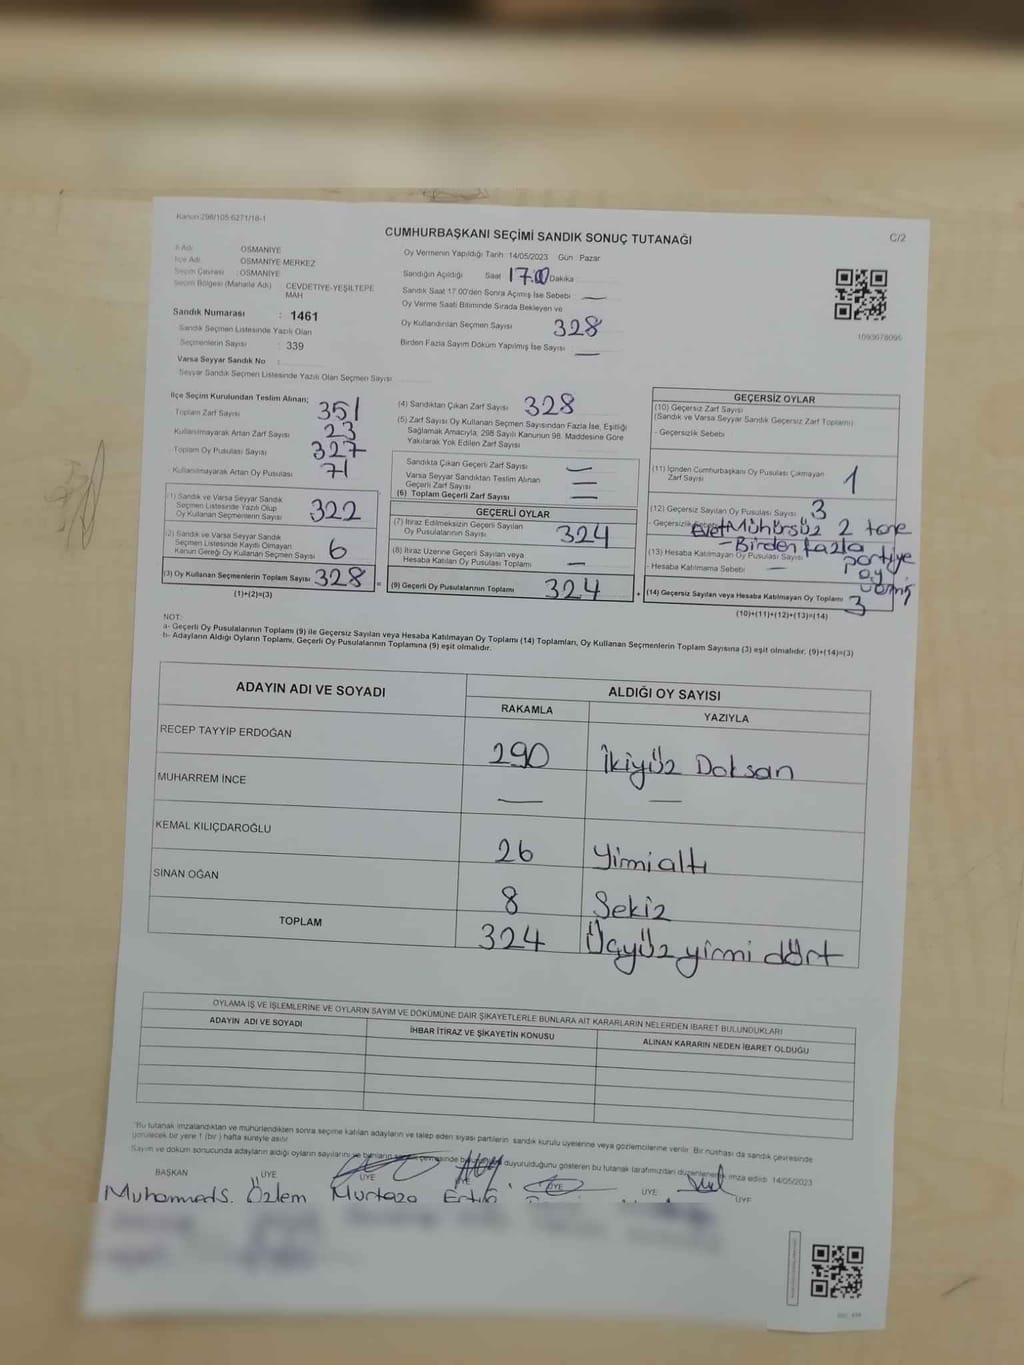 Kanun 298/105 6271/18-1
CUMHURBAŞKANI SEÇİMİ SANDIK SONUÇ TUTANAĞI
C/2
İl Adı OSMANİYE
İlçe Adı OSMANİYE MERKEZ
Seçim Çevresi : OSMANİYE
Seçim Bölgesi (Mahalle Adı) CEVDETİYE-YEŞİLTEPE
MAH
Sandık Numarası : 1461
Sandık Seçmen Listesinde Yazılı Olan
Seçmenlerin Sayısı : 339
Varsa Seyyar Sandık No :
Seyyar Sandık Seçmen Listesinde Yazılı Olan Seçmen Sayısı
Oy Vermenin Yapıldığı Tarih :14/05/2023 Gün : Pazar
Sandığın Açıldığı Saat 17.00 Dakika
Sandık Saat 17.00'den Sonra Açılmış İse Sebebi : —
Oy Verme Saati Bitiminde Sırada Bekleyen ve
Oy Kullandırılan Seçmen Sayısı 328
Birden Fazla Sayım Döküm Yapılmış İse Sayısı —
1093678095
İlçe Seçim Kurulundan Teslim Alınan;
Toplam Zarf Sayısı 351
Kullanılmayarak Artan Zarf Sayısı 23
Toplam Oy Pusulası Sayısı 327
Kullanılmayarak Artan Oy Pusulası 71
(1) Sandık ve Varsa Seyyar Sandık
Seçmen Listesinde Yazılı Olup
Oy Kullanan Seçmenlerin Sayısı 322
(2) Sandık ve Varsa Seyyar Sandık
Seçmen Listesinde Kayıtlı Olmayan
Kanun Gereği Oy Kullanan Seçmen Sayısı 6
(3) Oy Kullanan Seçmenlerin Toplam Sayısı 328 =
(1)+(2)=(3)
(4) Sandıktan Çıkan Zarf Sayısı 328
(5) Zarf Sayısı Oy Kullanan Seçmen Sayısından Fazla İse, Eşitliği
Sağlamak Amacıyla, 298 Sayılı Kanunun 98. Maddesine Göre
Yakılarak Yok Edilen Zarf Sayısı
Sandıkta Çıkan Geçerli Zarf Sayısı —
Varsa Seyyar Sandıktan Teslim Alınan
Geçerli Zarf Sayısı —
(6) Toplam Geçerli Zarf Sayısı —
GEÇERLİ OYLAR
(7) İtiraz Edilmeksizin Geçerli Sayılan
Oy Pusulalarının Sayısı 324
(8) İtiraz Üzerine Geçerli Sayılan veya
Hesaba Katılan Oy Pusulası Toplamı —
(9) Geçerli Oy Pusulalarının Toplamı 324 +
GEÇERSİZ OYLAR
(10) Geçersiz Zarf Sayısı
(Sandık ve Varsa Seyyar Sandık Geçersiz Zarf Toplamı)
- Geçersizlik Sebebi
(11) İçinden Cumhurbaşkanı Oy Pusulası Çıkmayan
Zarf Sayısı 1
(12) Geçersiz Sayılan Oy Pusulası Sayısı 3
- Geçersizlik Sebebi Evet Mühürsüz 2 tane
- Birden fazla partiye oy vermiş
(13) Hesaba Katılmayan Oy Pusulası Sayısı
- Hesaba Katılmama Sebebi —
(14) Geçersiz Sayılan veya Hesaba Katılmayan Oy Toplamı 3
(10)+(11)+(12)+(13)=(14)
NOT:
a- Geçerli Oy Pusulalarının Toplamı (9) ile Geçersiz Sayılan veya Hesaba Katılmayan Oy Toplamı (14) Toplamları, Oy Kullanan Seçmenlerin Toplam Sayısına (3) eşit olmalıdır. (9)+(14)=(3)
b- Adayların Aldığı Oyların Toplamı, Geçerli Oy Pusulalarının Toplamına (9) eşit olmalıdır.
ADAYIN ADI VE SOYADI ALDIĞI OY SAYISI
RAKAMLA YAZIYLA
RECEP TAYYİP ERDOĞAN 290 İkiyüz Doksan
MUHARREM İNCE — —
KEMAL KILIÇDAROĞLU 26 Yirmialtı
SİNAN OĞAN 8 Sekiz
TOPLAM 324 Üçyüz yirmi dört
OYLAMA İŞ VE İŞLEMLERİNE VE OYLARIN SAYIM VE DÖKÜMÜNE DAİR ŞİKAYETLERLE BUNLARA AİT KARARLARIN NELERDEN İBARET BULUNDUKLARI
ADAYIN ADI VE SOYADI İHBAR İTİRAZ VE ŞİKAYETİN KONUSU ALINAN KARARIN NEDEN İBARET OLDUĞU
"Bu tutanak imzalandıktan ve mühürlendikten sonra seçime katılan adayların ve talep eden siyasi partilerin sandık kurulu üyelerine veya gözlemcilerine verilir. Bir nüshası da sandık çevresinde
görülecek bir yere 1 (bir ) hafta süreyle asılır.
Sayım ve döküm sonucunda adayların aldığı oyların sayılarını ve bunların çevresinde duyurulduğunu gösteren bu tutanak tarafımızdan düzenlenerek imza edildi. 14/05/2023
BAŞKAN ÜYE ÜYE ÜYE ÜYE ÜYE ÜYE
Muhammed S. Özlem Murtaza